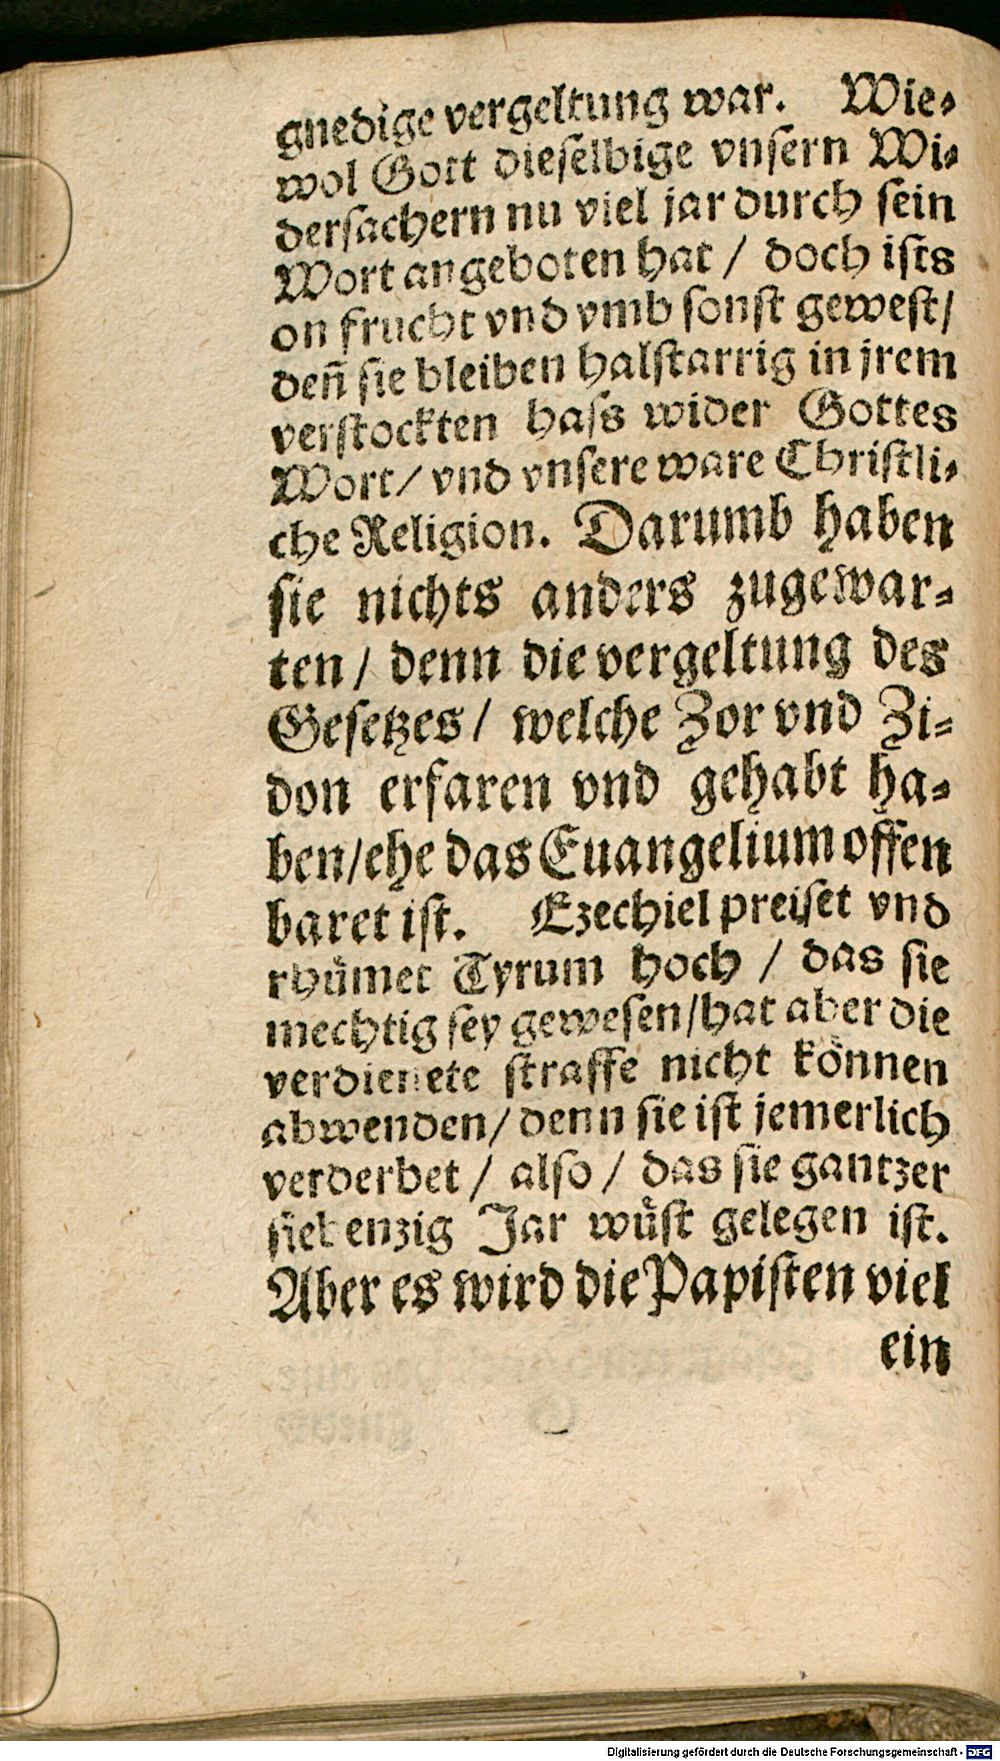 gnedige vergeltung war. Wie-
wol Gott dieselbige vnsern Wi-
dersachern nu viel jar durch sein
Wort angeboten hat / doch ists
on frucht vnd vmb sonst gewest/
deñ sie bleiben halstarrig in jrem
verstockten hass wider Gottes
Wort/ vnd vnsere ware Christli-
che Religion. Darumb haben
sie nichts anders zugewar-
ten / denn die vergeltung des
Gesetzes / welche Zor vnd Zi-
don erfaren vnd gehabt ha-
ben/ehe das Euangelium offen
baret ist. Ezechiel preiset vnd
rhümet Tyrum hoch / das sie
mechtig sey gewesen/hat aber die
verdienete straffe nicht können
abwenden/ denn sie ist jemerlich
verderbet / also / das sie gantzer
siebenzig Jar wüst gelegen ist.
Aber es wird die Papisten viel
ein
Digitalisierung gefördert durch die Deutsche Forschungsgemeinschaft - DFG